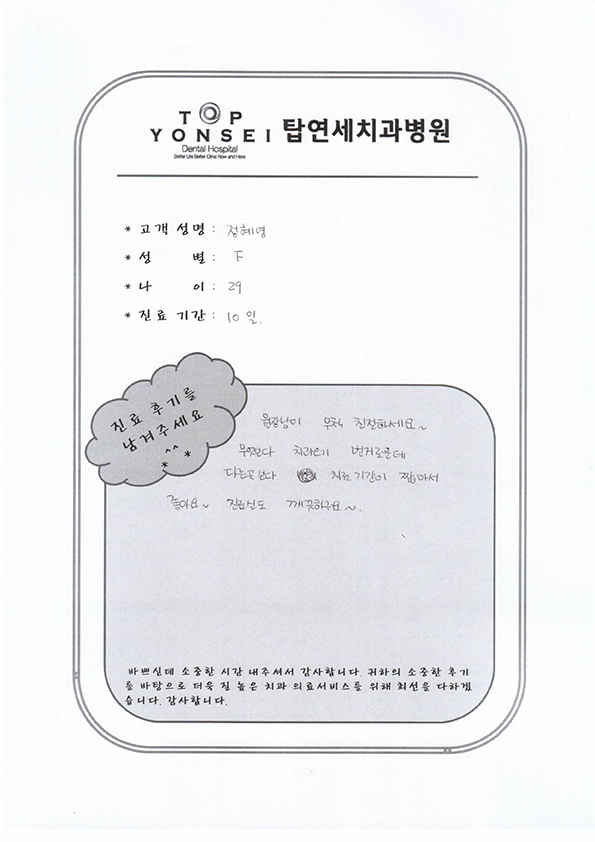 TOP
YONSEI 탑연세치과병원
Dental Hospital
Better Life Better Clinic Now and Here
* 고객 성명 : 정혜영
* 성 별 : F
* 나 이 : 29
* 진료 기간 : 10 일.
진료 후기를
남겨주세요
^^
* *
원장님이 무척 친절하세요~
무엇보다 치과오기 번거로운데
다른곳 보다 치료기간이 짧아서
좋아요~ 진료실도 깨끗하구요~.
바쁘신데 소중한 시간 내주셔서 감사합니다. 귀하의 소중한 후기
를 바탕으로 더욱 질 높은 치과 의료서비스를 위해 최선을 다하겠
습니다. 감사합니다.